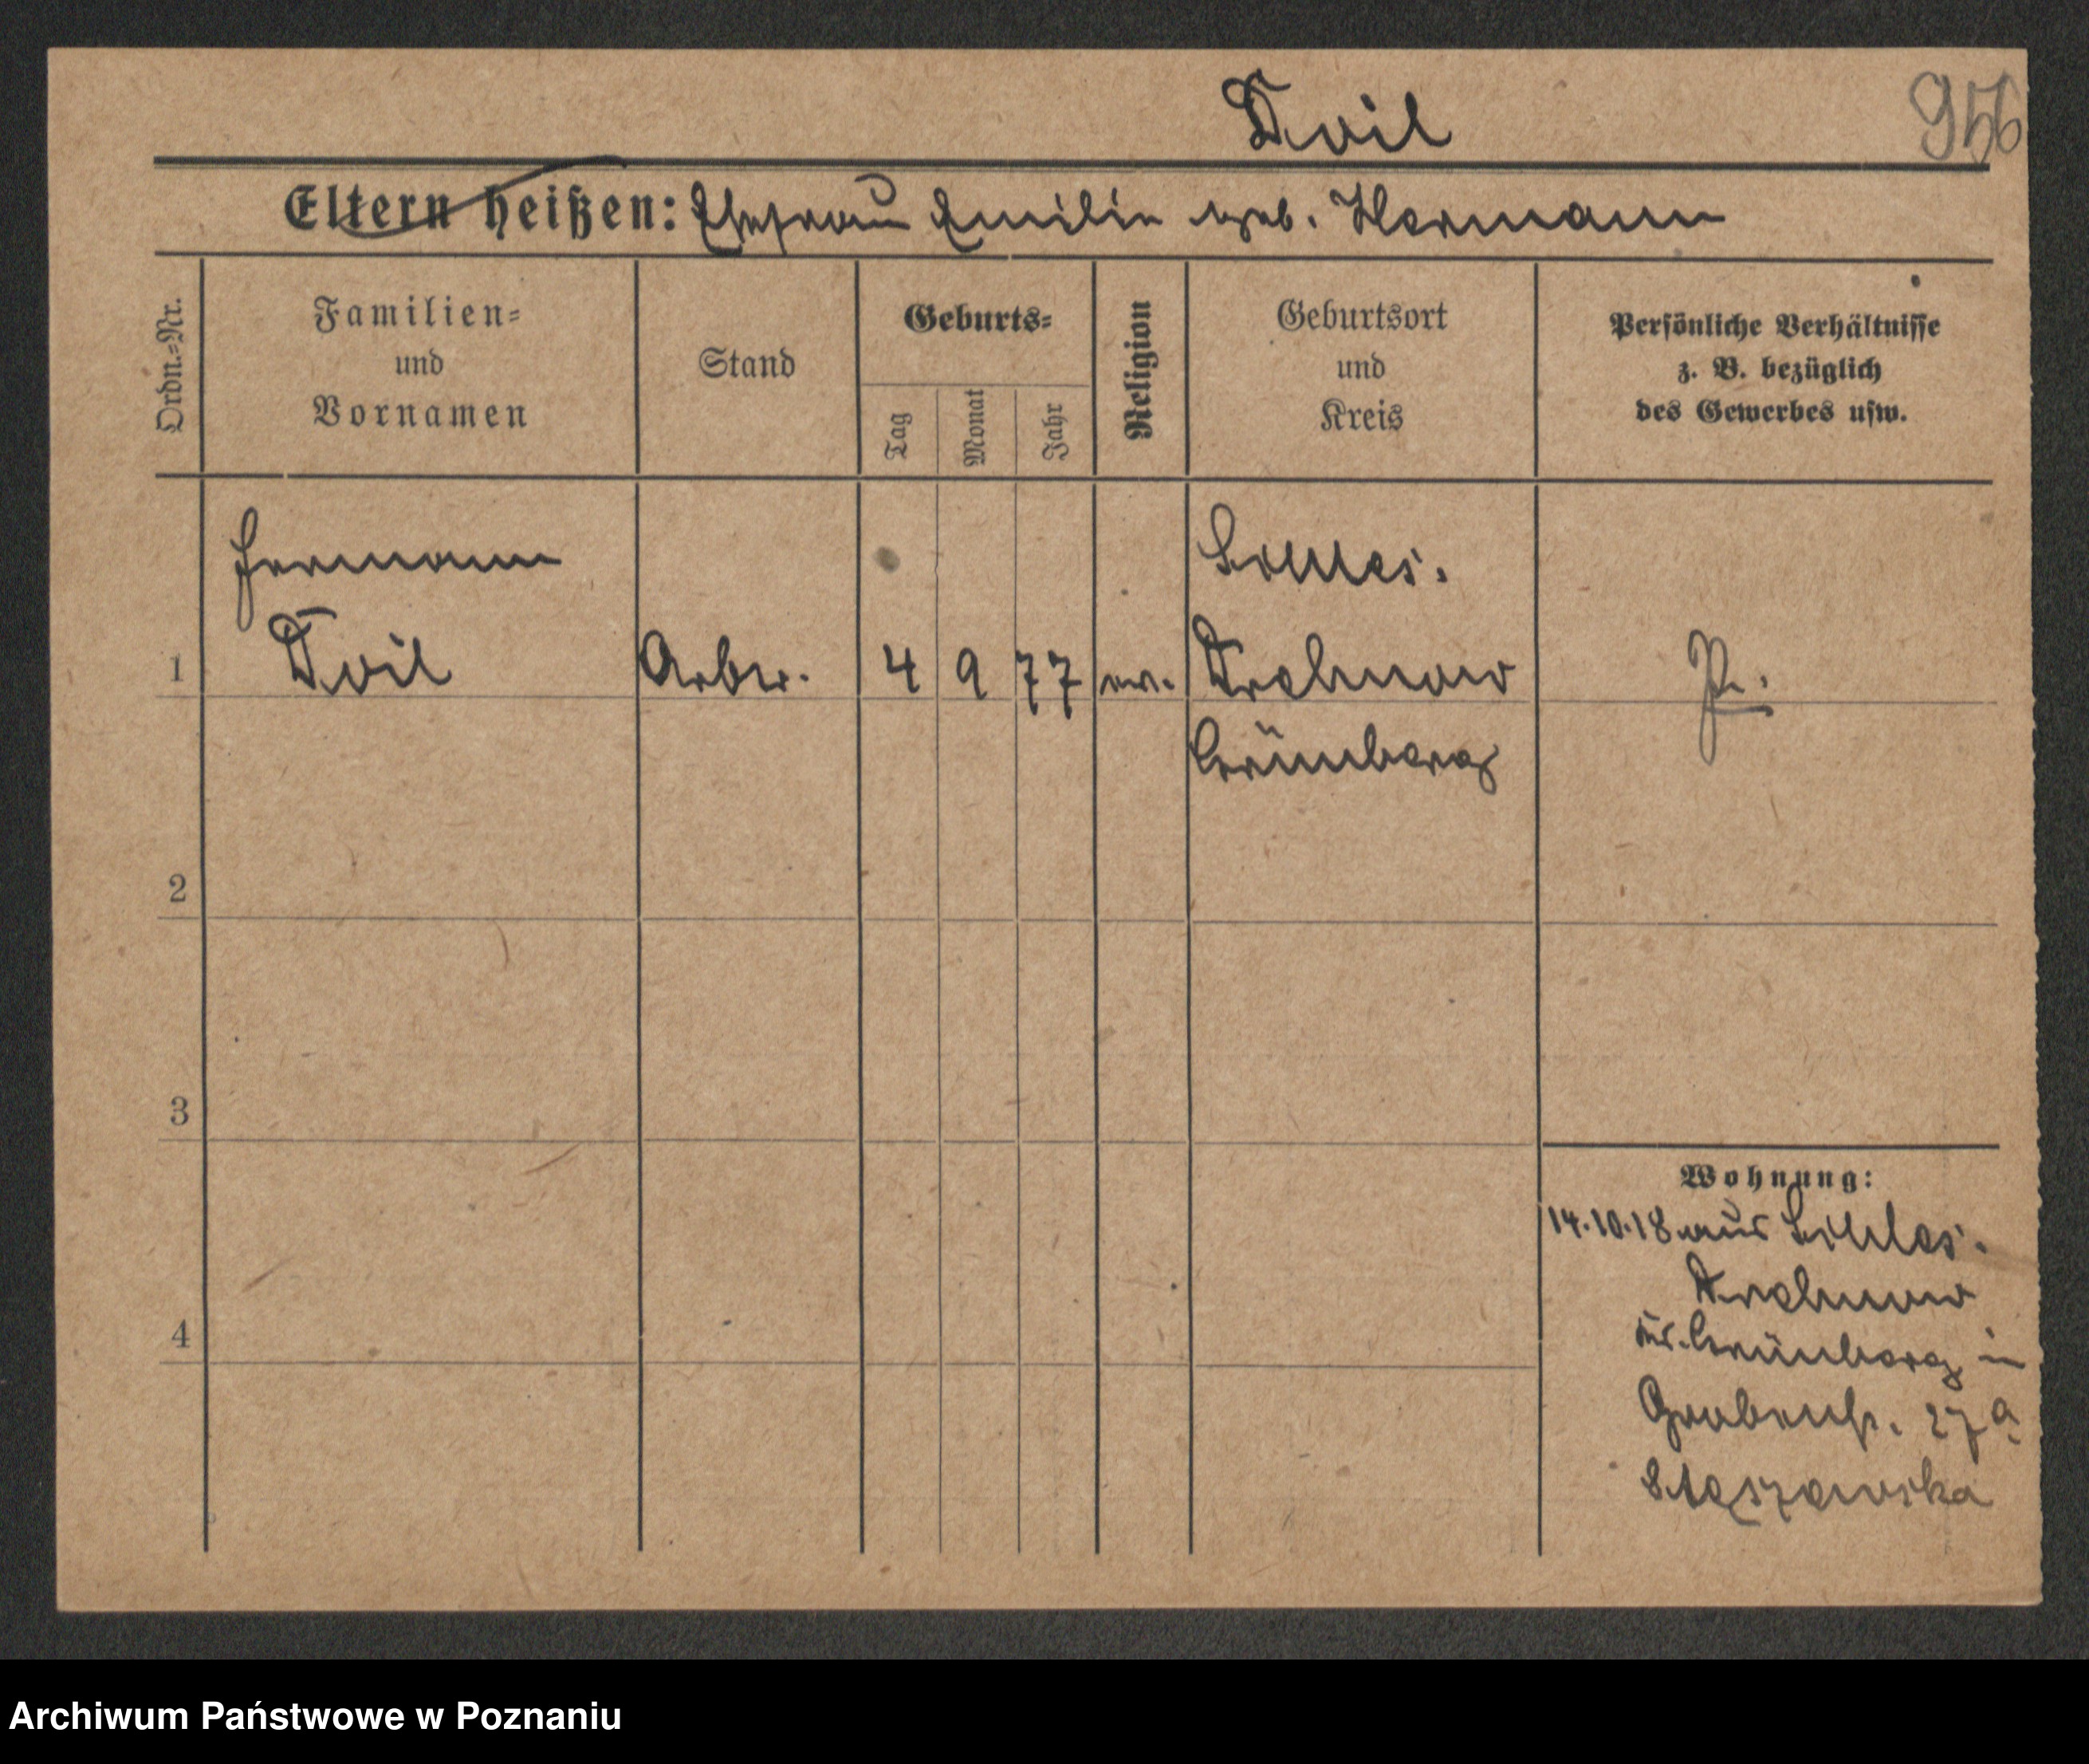 Doil
956
Eltern heißen: Ehefrau Emilie geb. Hermann
Ordn.=Nr.
Familien=
und
Vornamen
Stand
Geburts=
Tag
Monat
Jahr
Religion
Geburtsort
und
Kreis
Persönliche Verhältnisse
z. B. bezüglich
des Gewerbes usw.
Hermann
Schles.
1 Doil Arbtr. 4 9 77 ev. Drehnow
Grünberg
2
3
4
Wohnung:
14.10.18 aus Schles.
Drehnow
Kr. Grünberg in
Grabenstr. 27a
Staszewska
Archiwum Państwowe w Poznaniu